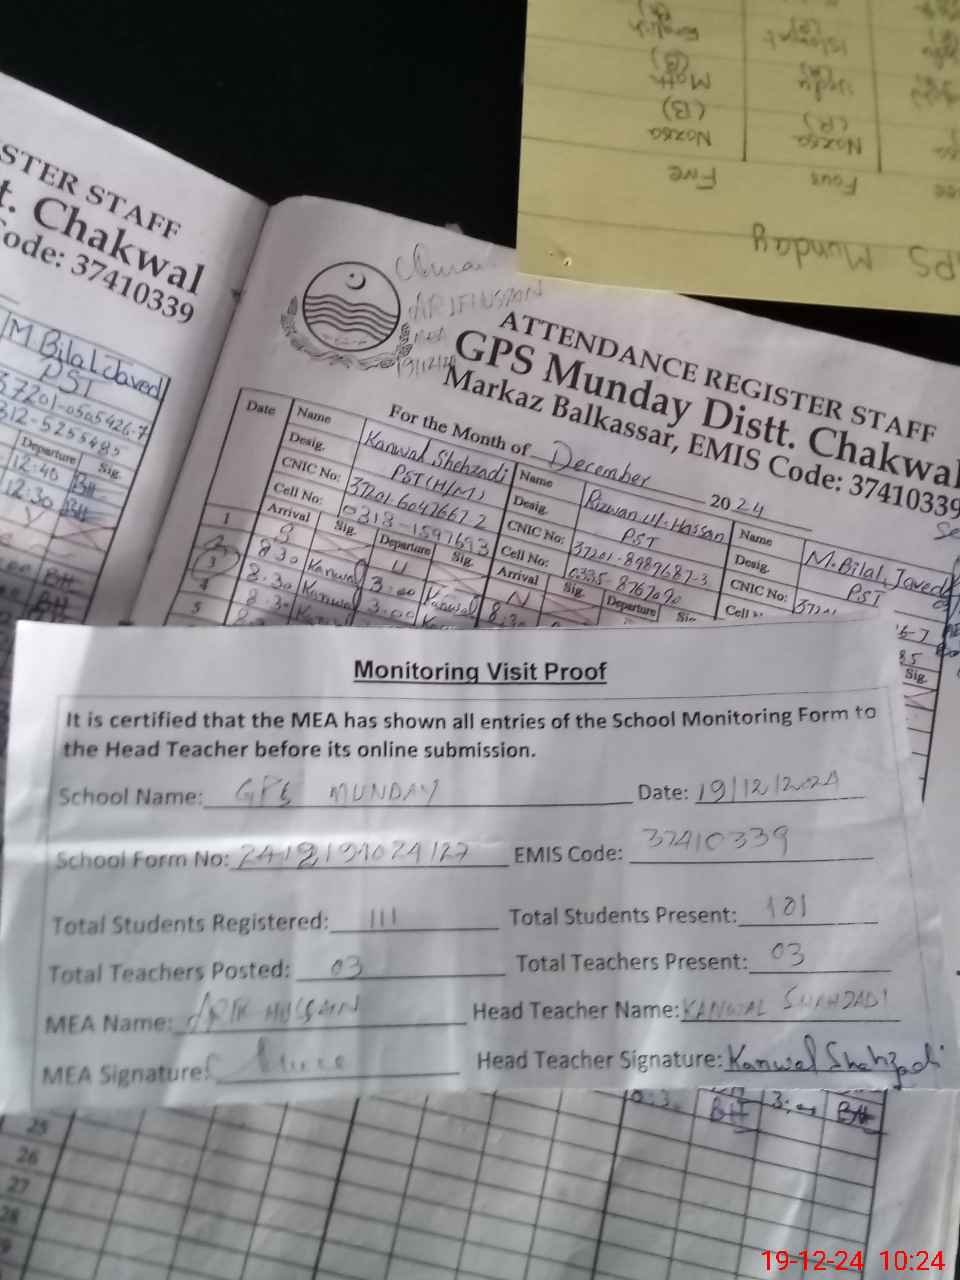 STER STAFF
t. Chakwal
ode: 37410339
M. Bilal Javed
PST
37201-0505426-7
312-525548
Departure Sig.
12:40 BH
12:30 BH
Five Four
Nazra Nazra
(B) (A)
Math Urdu
(B) (A)
English Islamyt
PS Munday
ARIF HUSSAIN
MEA
19/12/24
ATTENDANCE REGISTER STAFF
GPS Munday Distt. Chakwal
Markaz Balkassar, EMIS Code: 37410339
For the Month of December 2024
Date Name Kanwal Shehzadi Name Rizwan ul Hassan Name M. Bilal Javed
Desig. PST (H/M) Desig. PST Desig. PST
CNIC No: 37201-6047667-2 CNIC No: 37201-8989687-3 CNIC No: 3720
Cell No: 0318-1591693 Cell No: 0335-8767090 Cell
Arrival Sig. Departure Sig. Arrival Sig. Departure Sig.
1 S U N
2 8:30 Kanwal 3:00 Kanwal 8:30
3 8:30 Kanwal 3:00
4 8:30
5
Sig.
Monitoring Visit Proof
It is certified that the MEA has shown all entries of the School Monitoring Form to
the Head Teacher before its online submission.
School Name: GPS MUNDAY Date: 19/12/2024
School Form No: 2412191024127 EMIS Code: 37410339
Total Students Registered: 111 Total Students Present: 101
Total Teachers Posted: 03 Total Teachers Present: 03
MEA Name: ARIF HUSSAIN Head Teacher Name: KANWAL SHAHZADI
MEA Signature: Head Teacher Signature: Kanwal Shahzadi
BH 3:00 BH
25
26
27
28
9
19-12-24 10:24